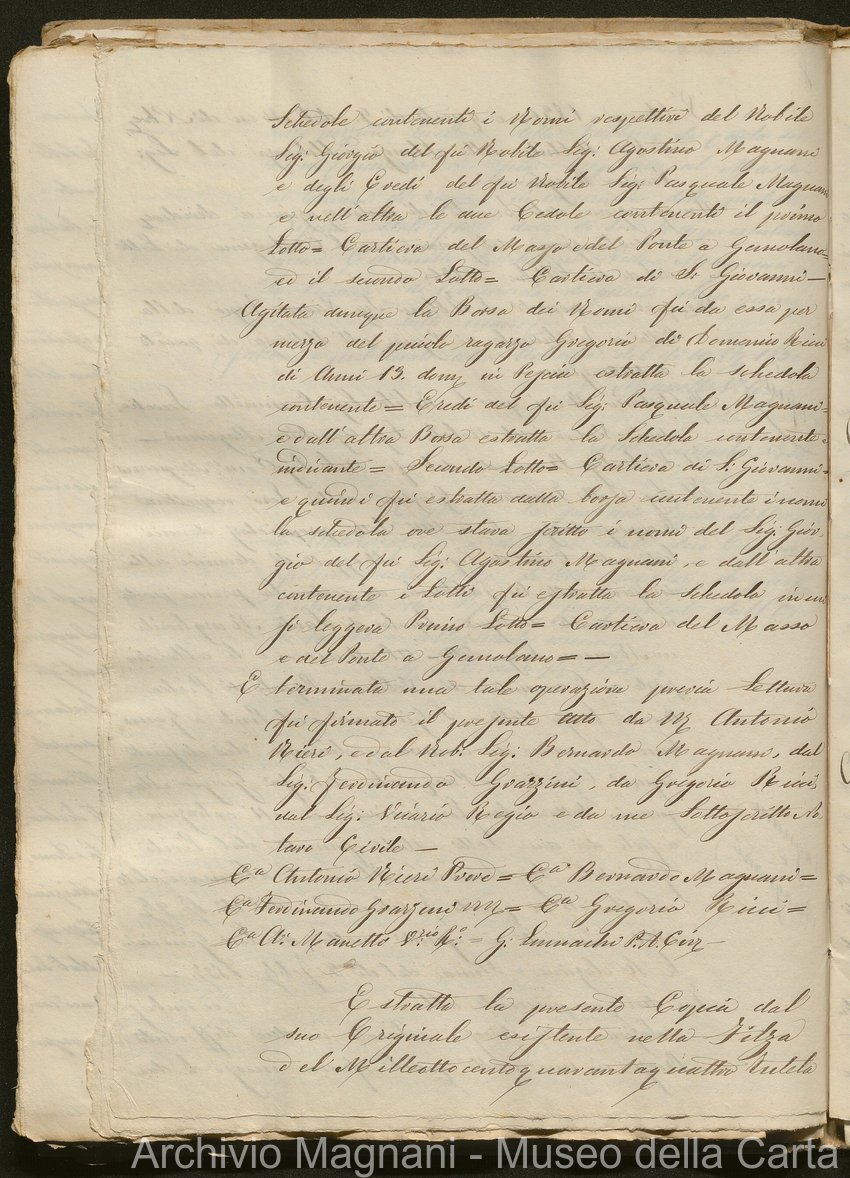 Schedole contenenti i Nomi respettivi del Nobile
Sig: Giorgio del fù Nobile Sig: Agostino Magnani
e degli Eredi del fù Nobile Sig: Pasquale Magnani
e nell'altra le due Cedole contenenti il primo
Lotto= Cartiera del Masso e del Ponte a Gemolano=
ed il secondo Lotto= Cartiera di S: Giovanni—
Agitata dunque la Borsa dei Nomi fù da essa per
mezzo del piccolo ragazzo Gregorio di Domenico Ricci
di Anni 13. dom: in Pescia estratta la schedola
contenente= Eredi del fù Sig: Pasquale Magnani=
e dall'altra Borsa estratta la Schedola contenente
indicante= Secondo Lotto= Cartiera di S: Giovanni=
e quindi fù estratta dalla borsa contenente i nomi
la schedola ove stava scritto i nomi del Sig: Gior-
gio del fù Sig: Agostino Magnani, e dall'altra
contenente i Lotti fù estratta la Schedola in cui
si leggeva Primo Lotto= Cartiera del Masso
e del Ponte a Gemolano=—
E terminata una tale operazione previa Lettura
fù firmato il presente atto da Antonio
Nieri, e dal Nob: Sig: Bernardo Magnani, dal
Sig: Ferdinando Grazzini, da Gregorio Ricci
dal Sig: Vicario Regio e da me Sottoscritto No
taro Civile—
Ca Antonio Nieri = Ca Bernardo Magnani=
Ca Ferdinando Grazzini = Ca Gregorio Ricci=
Ca A: Manetti V:rio R:o = G:
Estratta la presente Copia dal
suo Originale esistente nella Filza
del Milleottocentoquarantaquattro
Archivio Magnani - Museo della Carta